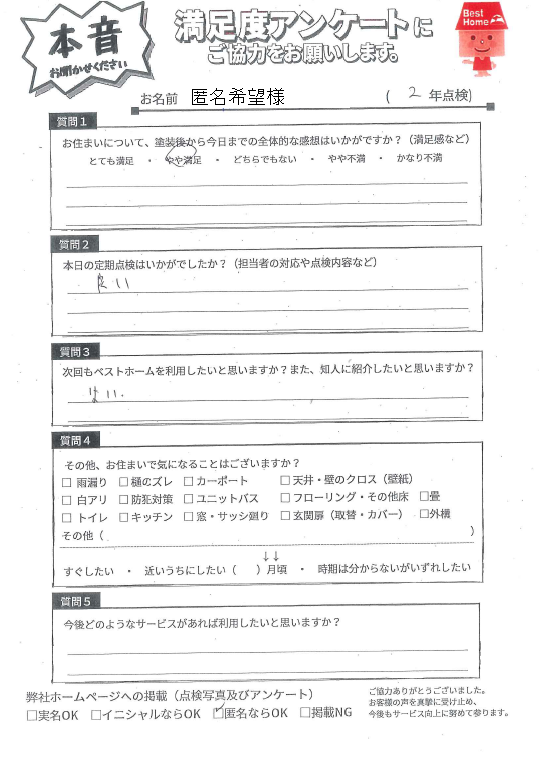 本音
お聞かせください
満足度アンケートに
ご協力をお願いします。
Best Home
お名前 匿名希望様 ( 2 年点検)
質問1
お住まいについて、塗装後から今日までの全体的な感想はいかがですか?(満足感など)
とても満足 ・ やや満足 ・ どちらでもない ・ やや不満 ・ かなり不満
質問2
本日の定期点検はいかがでしたか?(担当者の対応や点検内容など)
良い
質問3
次回もベストホームを利用したいと思いますか?また、知人に紹介したいと思いますか?
はい.
質問4
その他、お住まいで気になることはございますか?
□ 雨漏り □ 樋のズレ □ カーポート □ 天井・壁のクロス(壁紙)
□ 白アリ □ 防犯対策 □ ユニットバス □ フローリング・その他床 □畳
□ トイレ □ キッチン □ 窓・サッシ廻り □ 玄関扉(取替・カバー) □外構
その他( )
↓↓
すぐしたい ・ 近いうちにしたい( )月頃 ・ 時期は分からないがいずれしたい
質問5
今後どのようなサービスがあれば利用したいと思いますか?
弊社ホームページへの掲載(点検写真及びアンケート)
□実名OK □イニシャルならOK ☑匿名ならOK □掲載NG
ご協力ありがとうございました。
お客様の声を真摯に受け止め、
今後もサービス向上に努めて参ります。